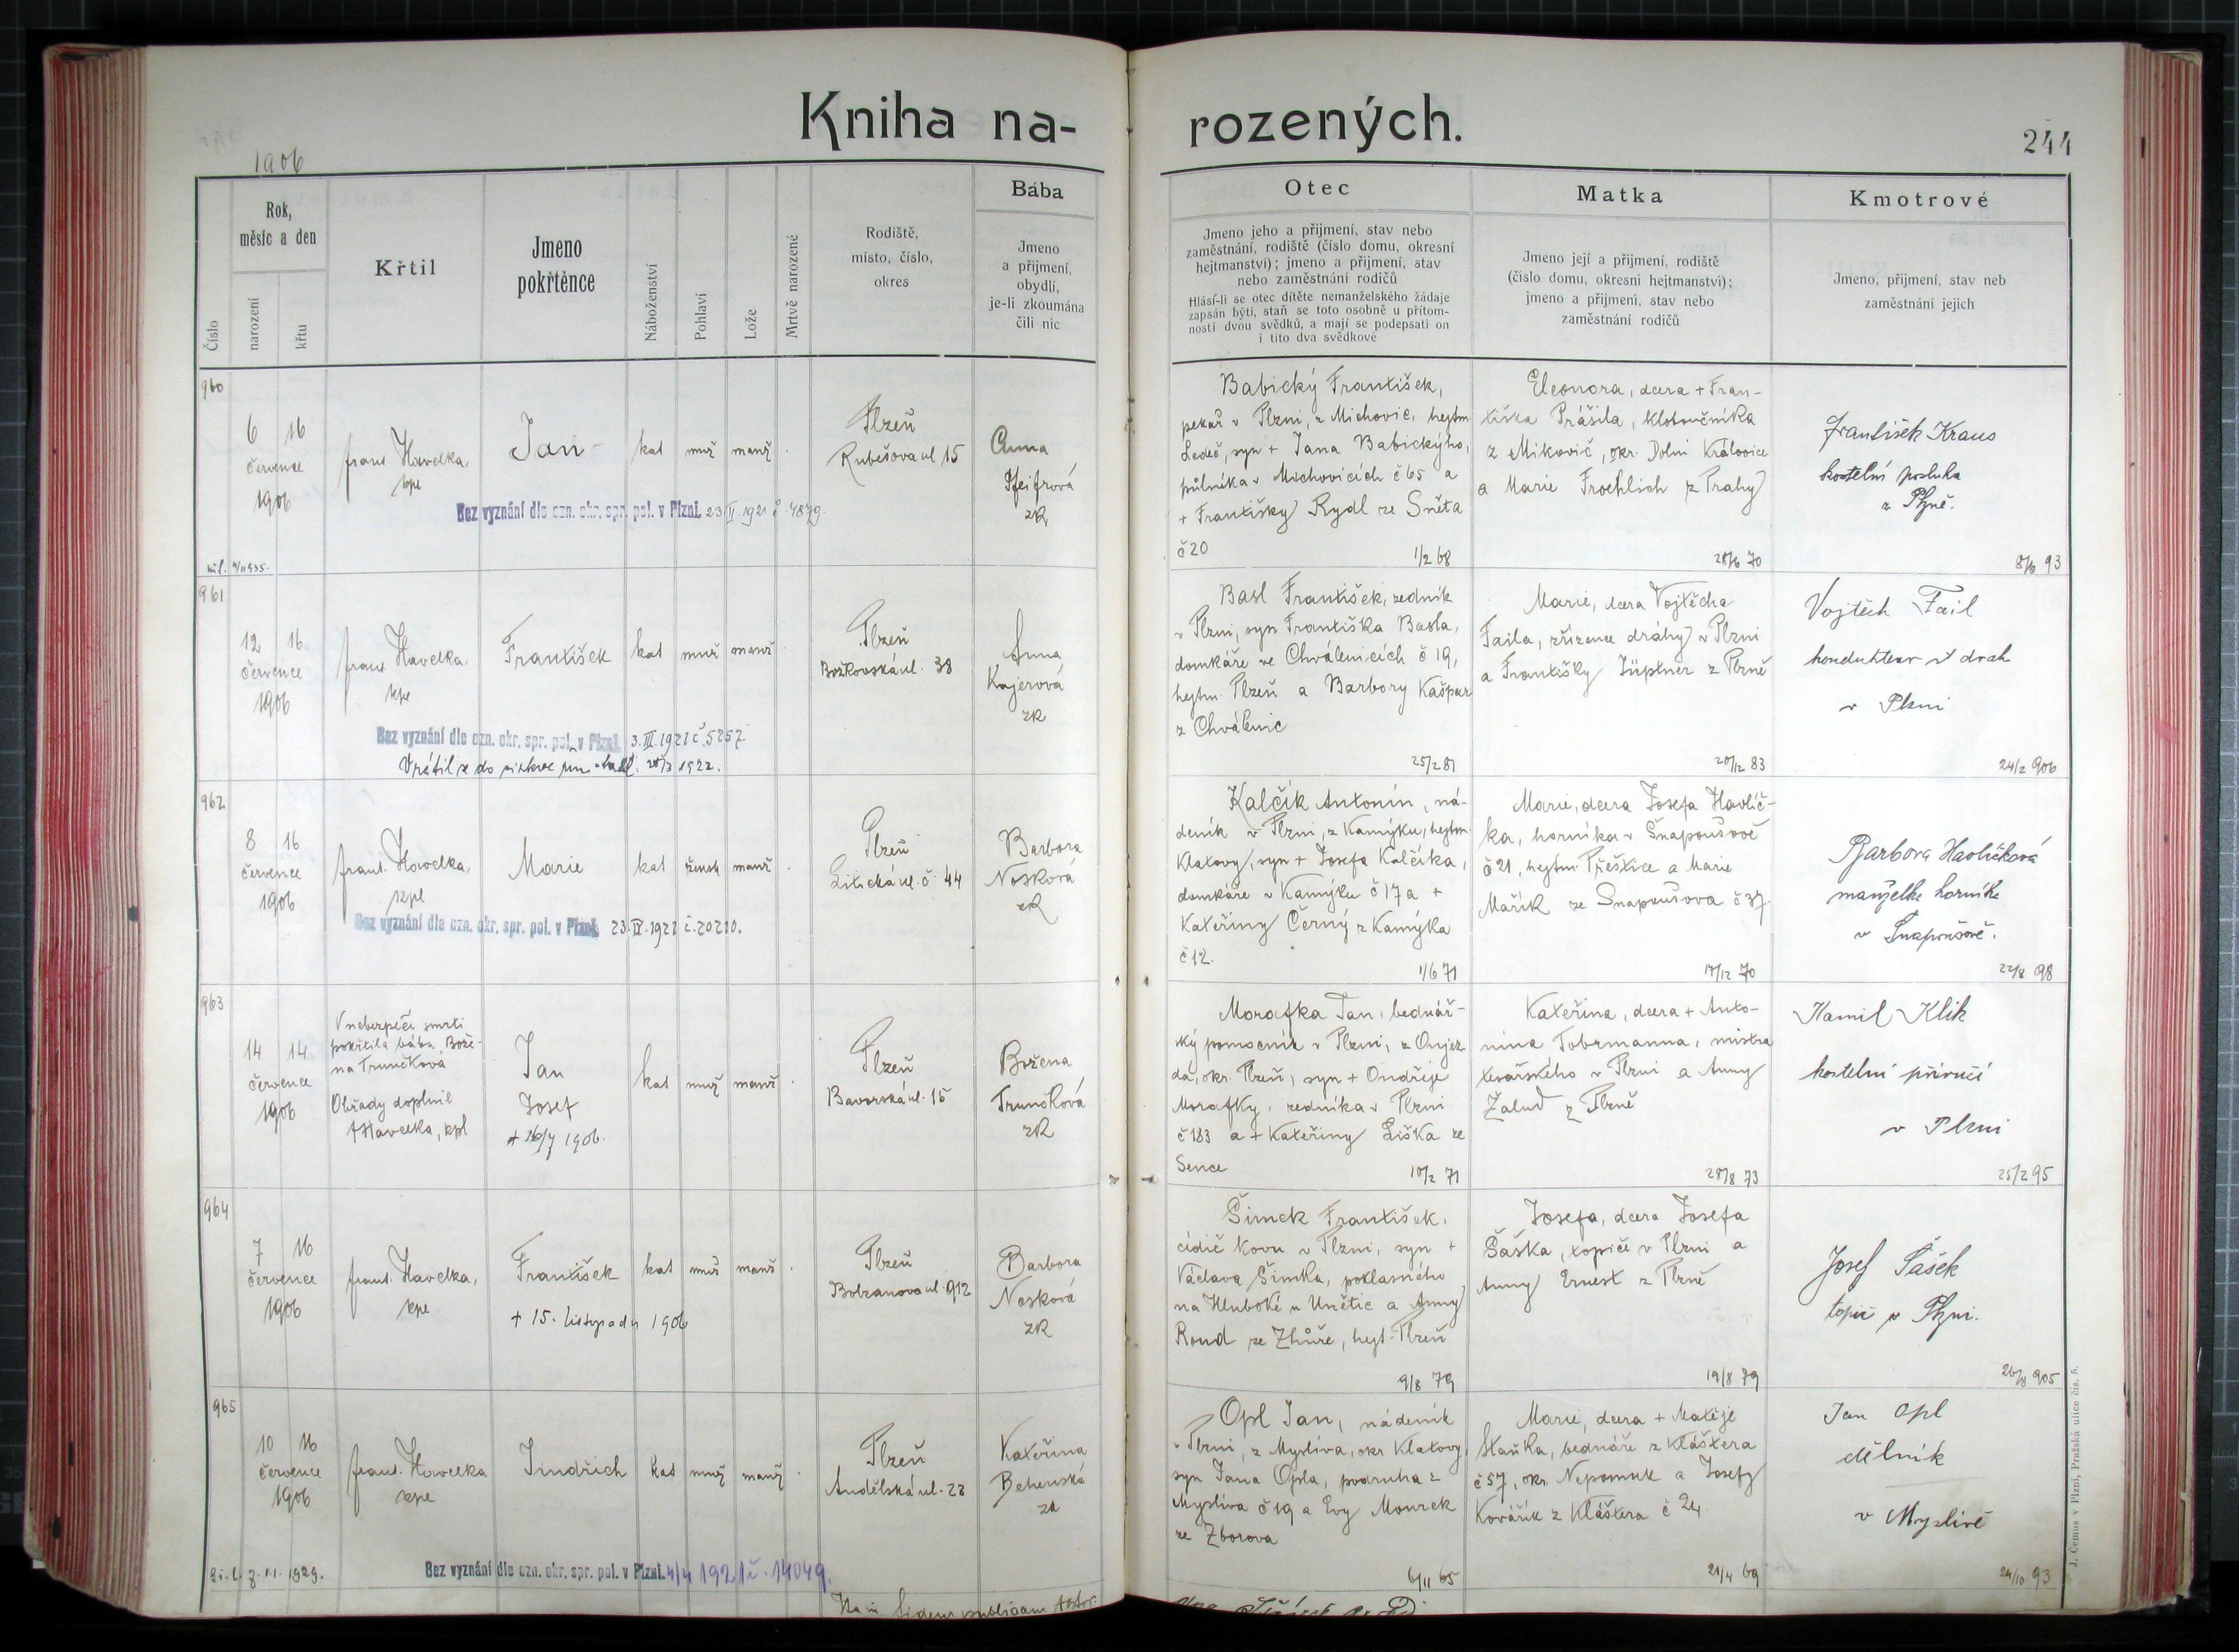 Kniha na-
rozených.
244
1906
Číslo
Rok,
měsíc a den
narození
křtu
Křtil
Jmeno
pokřtěnce
Náboženství
Pohlaví
Lože
Mrtvě narozené
Rodiště,
místo, číslo,
okres
Bába
Jmeno
a přijmení,
obydlí,
je-li zkoumána
čili nic
Otec
Jmeno jeho a přijmení, stav nebo
zaměstnání, rodiště (číslo domu, okresní
hejtmanství); jmeno a přijmení, stav
nebo zaměstnání rodičů
Hlásí-li se otec dítěte nemanželského žádaje
zapsán býti, staň se toto osobně u přítom-
nosti dvou svědků, a mají se podepsati on
i tito dva svědkové
Matka
Jmeno její a přijmení, rodiště
(číslo domu, okresní hejtmanství);
jmeno a přijmení, stav nebo
zaměstnání rodičů
Kmotrové
Jmeno, přijmení, stav neb
zaměstnání jejich
960
6 16
července
1906
frant. Havelka,
kpl
Jan
kat muž manž
Plzeň
Rubešova ul 15
Anna
Pfeifrová
zk
Bez vyznání dle ozn. okr. spr. pol. v Plzni. 23 II. 1921 č. 4879.
Babický František,
pekař v Plzni, z Michovic, hejtm.
Ledeč, syn + Jana Babickýho,
půlníka v Michovicích č 65 a
+ Františky Rydl ze Sněta
č 20
1/2 68
Eleonora, dcera + Fran-
tiška Prášila, kloboučníka
z Mikovič, okr. Dolní Královice
a Marie Froehlich z Prahy
28/6 70
František Kraus
kostelní posluha
z Plzně.
8/6 93
961
12 16.
července
1906
frant. Havelka.
kpl
František
kat muž manž
Plzeň
Božkovská ul. 38
Anna
Kajerová
zk
Bez vyznání dle ozn. okr. spr. pol. v Plzni. 3. III. 1921 č. 5257
Vrátil se do církve 1922.
Basl František, zedník
v Plzni, syn Františka Basla,
domkáře ve Chválenicích č 19,
hejtm. Plzeň a Barbory Kašpar
z Chválenic
25/2 81
Marie, dcera Vojtěcha
Faila, zřízence dráhy v Plzni
a Františky Jüptner z Plzně
20/12 83
Vojtěch Fail
kondukteur st drah
v Plzni
24/2 906
962
8 16
července
1906
frant. Havelka,
kpl
Marie
kat žensk manž
Plzeň
Litická ul. č. 44
Barbora
Nosková
zk
Bez vyznání dle ozn. okr. spr. pol. v Plzni. 23. IV. 1921 č. 20210.
Kalčík Antonín, ná-
deník v Plzni, z Kamýku, hejtm.
Klatovy, syn + Josefa Kalčíka,
domkáře v Kamýku č 17 a +
Kateřiny Černý z Kamýka
č 12.
1/6 71
Marie, dcera Josefa Havlíč-
ka, horníka v Šnapoušově
č 21, hejtm. Přeštice a Marie
Mařík ze Šnapoušova č 37.
17/12 70
Barbora Havlíčková
manželka horníka
v Šnapoušově.
22/8 98
963
14 14
července
1906
V nebezpečí smrti
pokřtila bába Bože-
na Trunčková
Obřady doplnil
f Havelka, kpl
Jan
Josef
+ 26/7 1906.
kat muž manž
Plzeň
Bavorská ul. 15
Božena
Trunčková
zk
Morafka Jan, bednář-
ský pomocník v Plzni, z Oujez-
da, okr. Plzeň, syn + Ondřeje
Morafky, zedníka v Plzni
č 183 a + Kateřiny Liška ze
Sence
10/2 71
Kateřina, dcera + Anto-
nína Tobrmanna, mistra
tesařského v Plzni a Anny
Žalud z Plzně
28/8 73
Kamil Klik
kostelní příručí
v Plzni
25/2 95
964
7 16
července
1906
frant. Havelka,
kpl
František
+ 15. listopadu 1906
kat muž manž
Plzeň
Bolzanova ul. 912
Barbora
Nosková
zk
Šimek František,
cídič kovu v Plzni, syn +
Václava Šimka, poklasného
na Hluboké u Unětic a Anny
Roud ze Zhůře, hejt. Plzeň
9/8 79
Josefa, dcera Josefa
Šáška, topiče v Plzni a
Anny Ernest z Plzně
19/8 79
Josef Šašek
topič v Plzni.
26/8 905
965
10 16
července
1906
frant. Havelka
kpl
Jindřich
kat muž manž
Plzeň
Andělská ul. 23
Kateřina
Behenská
zk
1929.
Bez vyznání dle ozn. okr. spr. pol. v Plzni. 4/4 1921 č. 14049.
Opl Jan, nádeník
v Plzni, z Myslíva, okr Klatovy,
syn Jana Opla, podruha z
Myslíva č 19 a Evy Mourek
ze Zborova
6/11 65
Marie, dcera + Matěje
Staňka, bednáře z Kláštera
č 57, okr. Nepomuk a Josefy
Kovářík z Kláštera č 24.
21/4 69
Jan Opl
dělník
v Myslívě
24/10 93
fidem publicam
J. Cemus v Plzni, Pražská ulice čís. 5.